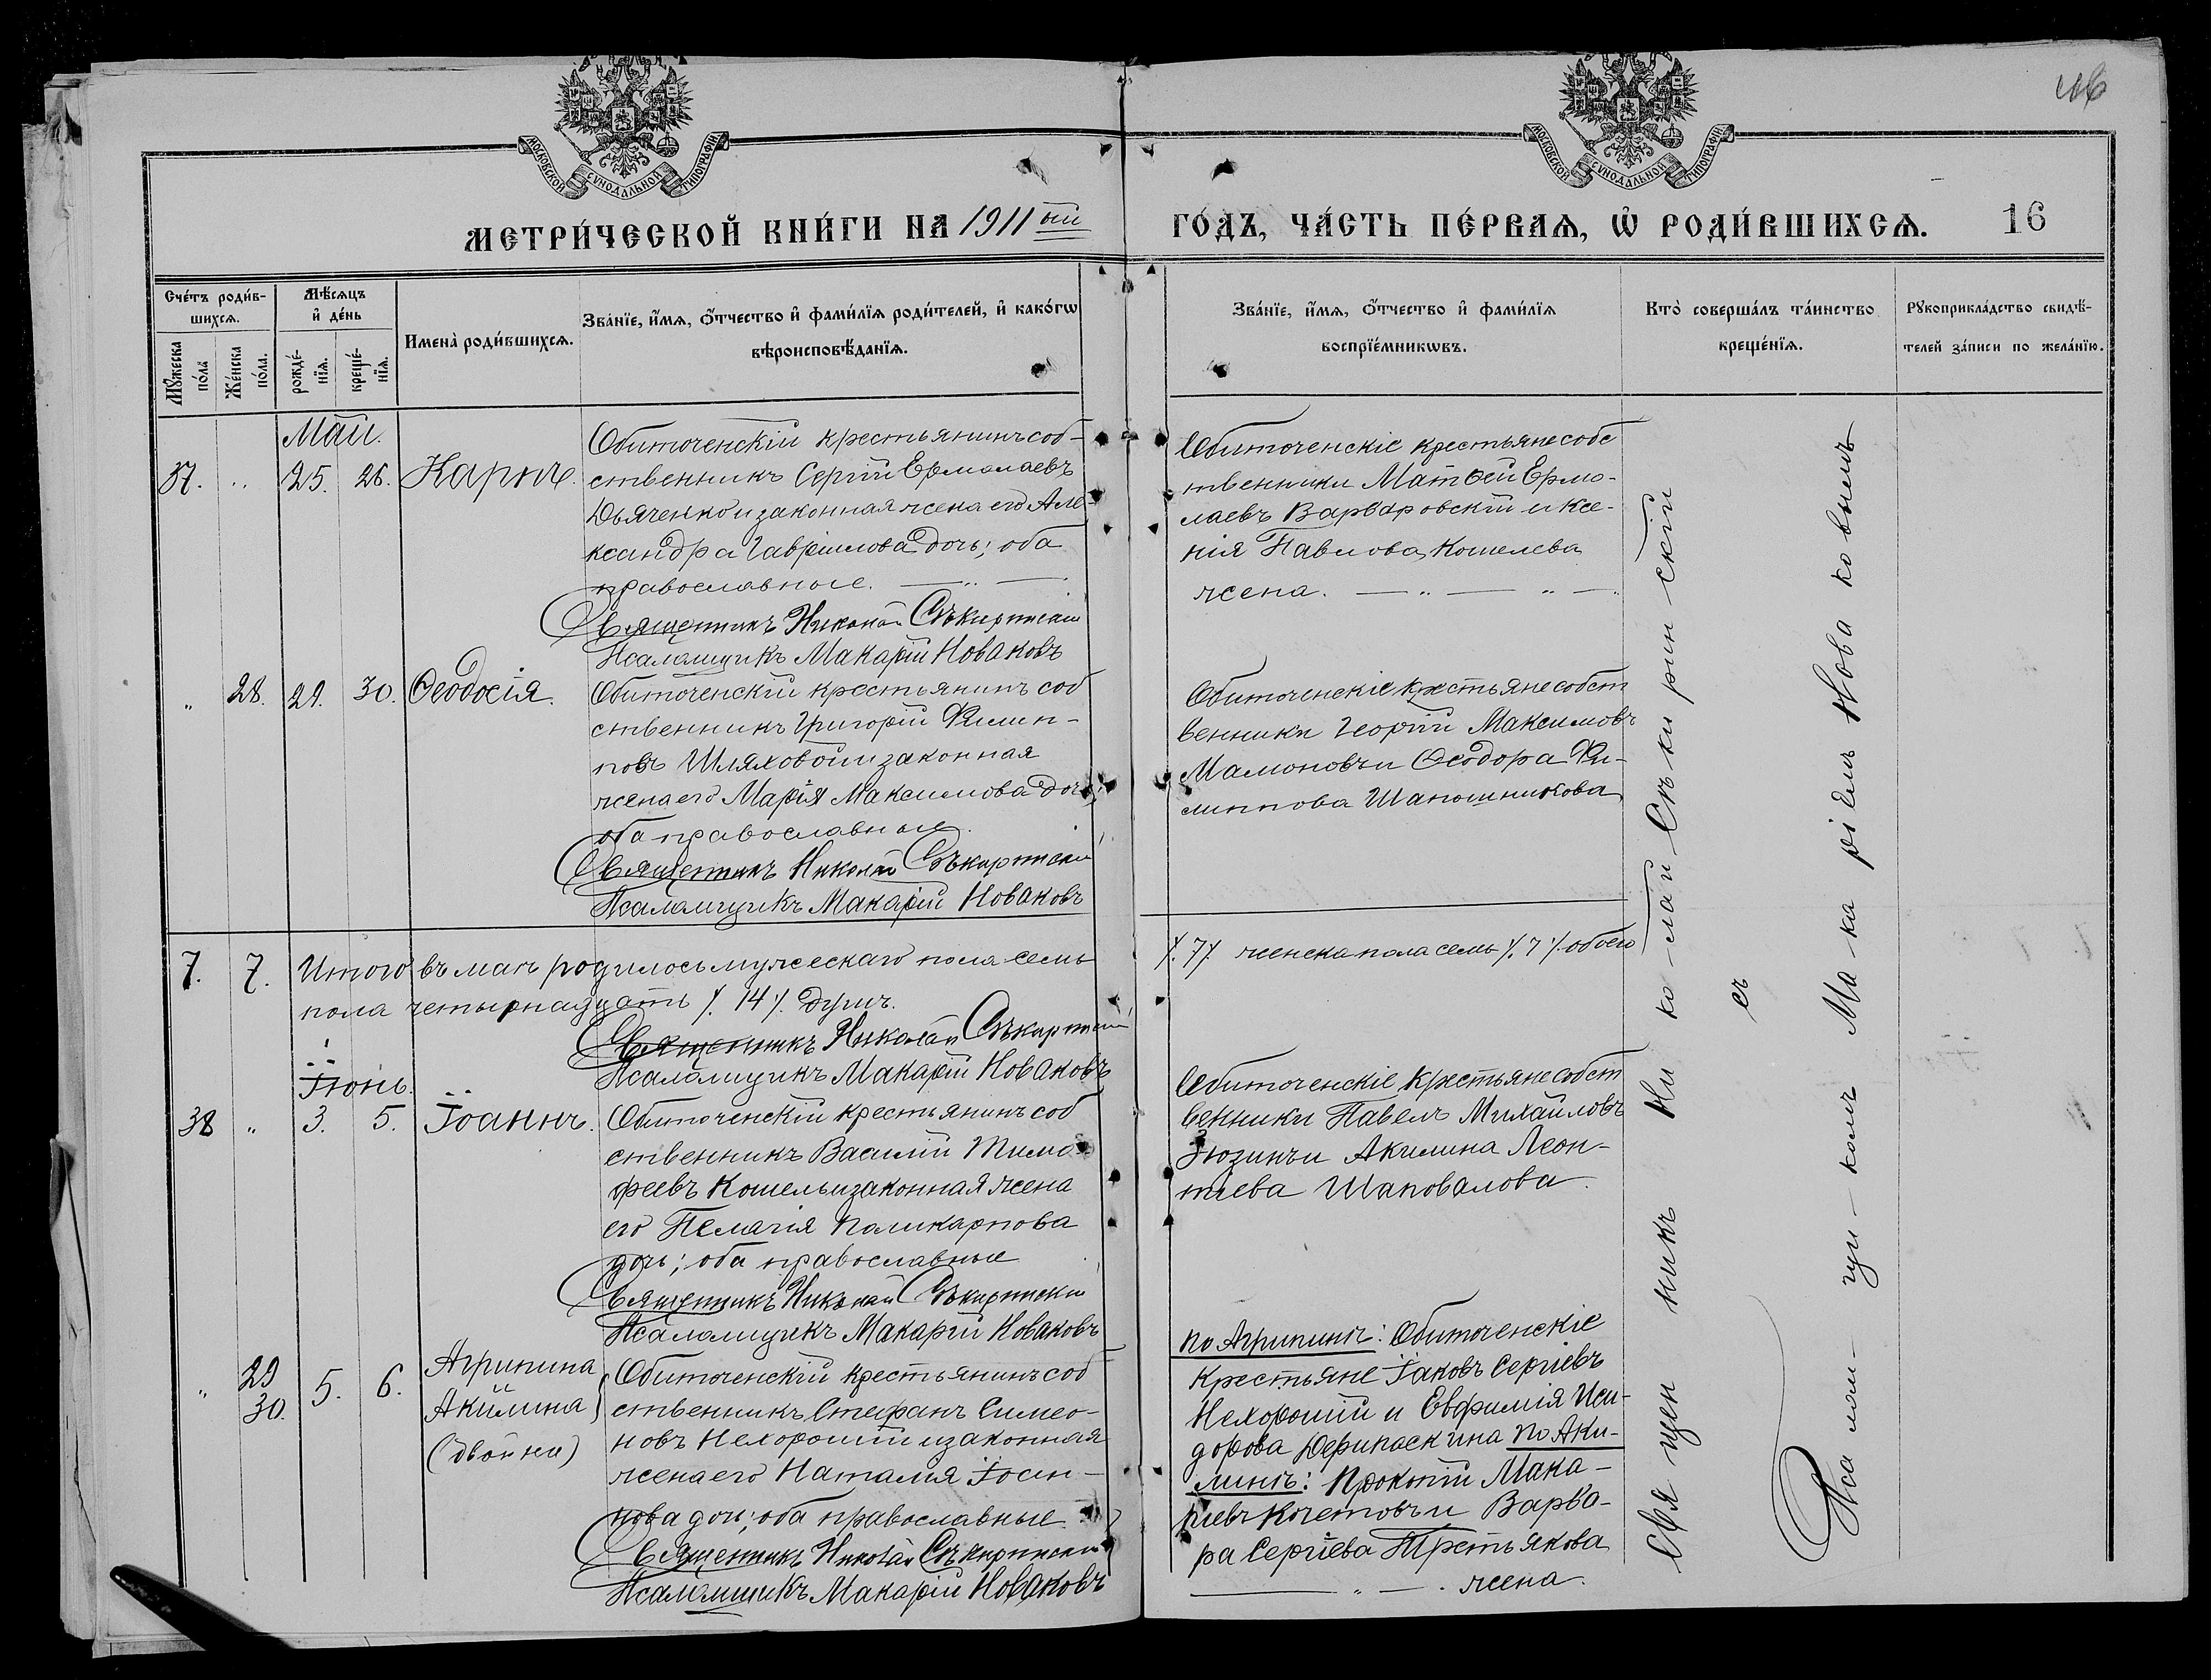 МОСКОВСКОЙ СѴНОДАЛЬНОЙ ТИПОГРАФІИ
МОСКОВСКОЙ СѴНОДАЛЬНОЙ ТИПОГРАФІИ
МЕТРИ́ЧЕСКОЙ КНИ́ГИ НА 1911ый
ГО́ДЪ, ЧА́СТЬ ПЕ́РВАѦ, Ѡ҆ РОДИ́ВШИХСѦ. 16
Сче́тъ роди́в-
шихсѧ.
Мѣ́сѧцъ
и҆ де́нь
Мꙋ́жеска
по́ла
Же́нска
по́ла.
рожде́-
нїѧ.
креще́-
нїѧ.
Имена̀ роди́вшихсѧ.
Зва́нїе, и҆́мѧ, ѻ҆́тчество и҆ фами́лїѧ роди́телей, и҆ како́гѡ
вѣроисповѣ́данїѧ.
Зва́нїе, и҆́мѧ, ѻ҆́тчество и҆ фами́лїѧ
воспрїе́мникѡвъ.
Кто̀ соверша́лъ та́инство
креще́нїѧ.
Рꙋкоприкла́дство свидѣ́-
телей за́писи по жела́нїю.
Май.
37. " 25. 26. Карпъ.
Обиточенскій крестьянинъ соб-
ственникъ Сергій Ермолаевъ
Дьяченко и законная жена его Але-
ксандра Гавріилова дочь; оба
православные.
Священникъ Николай Съкиринскій
Псаломщикъ Макарій Новаковъ
Обиточенскіе крестьяне собс
твенники Матѳей Ермо-
лаевъ Варваровскій и Ксе-
нія Павлова Кошелева
жена.
" 28. 29. 30. Ѳеодосія.
Обиточенскій крестьянинъ соб
ственникъ Григорій Филип-
повъ Шляховой и законная
жена его Марія Максимова дочь;
оба православные.
Священникъ Николай Съкиринскій
Псаломщикъ Макарій Новаковъ
Обиточенскіе крестьяне собст
венники Георгій Максимовъ
Мамоновъ и Ѳеодора Фи-
липпова Шапошникова
7. 7. Итого въ маѣ родилось мужескаго пола семь
пола четырнадцать ٪ 14 ٪ душъ.
٪ 7 ٪ женска пола семь ٪ 7 ٪ обоего
Священникъ Николай Съкиринскій
Псаломщикъ Макарій Новаковъ
Іюнь.
38 " 3. 5. Іоаннъ.
Обиточенскій крестьянинъ соб
ственникъ Василій Тимо-
феевъ Кошель и законная жена
его Пелагія Поликарпова
дочь; оба православные
Священникъ Николай Съкиринскій
Псаломщикъ Макарій Новаковъ
Обиточенскіе крестьяне собст
венники Павелъ Михайловъ
Зюзинъ и Акилина Леон-
тіева Шаповалова.
" 29 30. 5. 6.
Агрипина
Акилина
(двойни)
Обиточенскій крестьянинъ соб
ственникъ Стефанъ Симео-
новъ Нехорошій и законная
жена его Наталія Іоси-
пова дочь; оба православные
Священникъ Николай Съкиринскій
Псаломщикъ Макарій Новаковъ
по Агрипинѣ: Обиточенскіе
крестьяне Іаковъ Сергіевъ
Нехорошій и Евфимія Иси-
дорова Дерипаскина по Аки-
линѣ: Прокопій Мака-
ріевъ Кочетовъ и Варва-
ра Сергіева Третьякова
жена.
Священникъ Николай Съкиринскій
съ
Псаломщикомъ Макаріемъ Новаковымъ